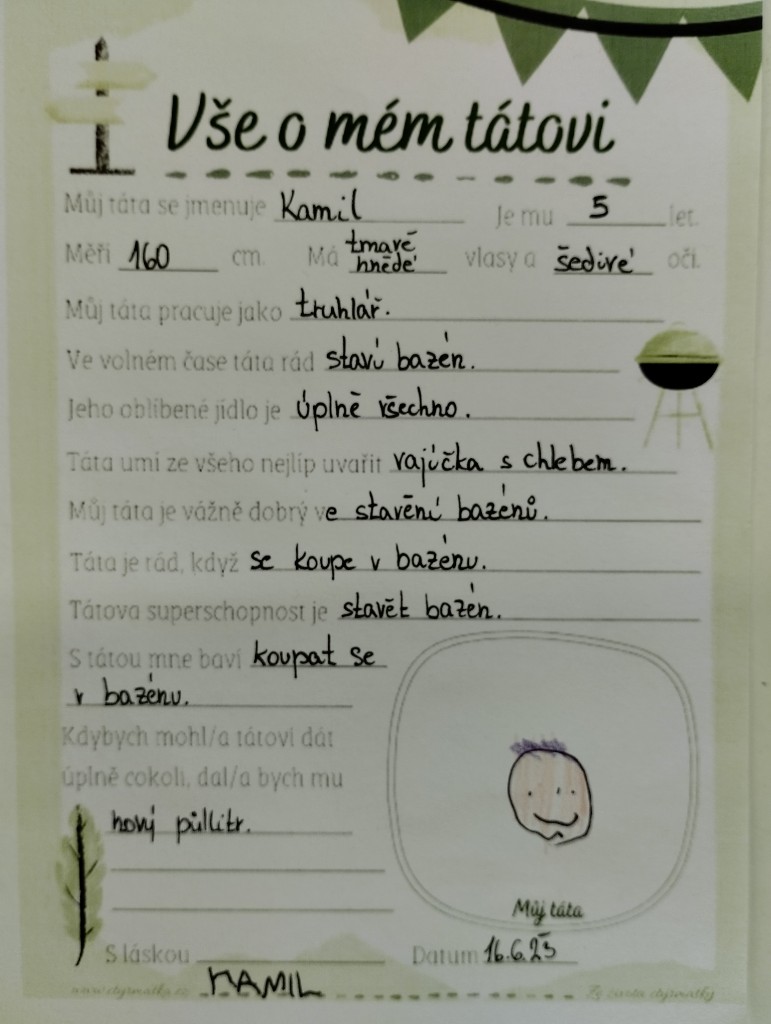 Vše o mém tátovi
Můj táta se jmenuje Kamil Je mu 5 let.
Měří 160 cm. Má tmavě hnědé vlasy a šedivé oči.
Můj táta pracuje jako truhlář.
Ve volném čase táta rád staví bazén.
Jeho oblíbené jídlo je úplně všechno.
Táta umí ze všeho nejlíp uvařit vajíčka s chlebem.
Můj táta je vážně dobrý ve stavění bazénů.
Táta je rád, když se koupe v bazénu.
Tátova superschopnost je stavět bazén.
S tátou mne baví koupat se
v bazénu.
Kdybych mohl/a tátovi dát
úplně cokoli, dal/a bych mu
nový půllitr.
Můj táta
S láskou Datum 16.6.23
KAMIL